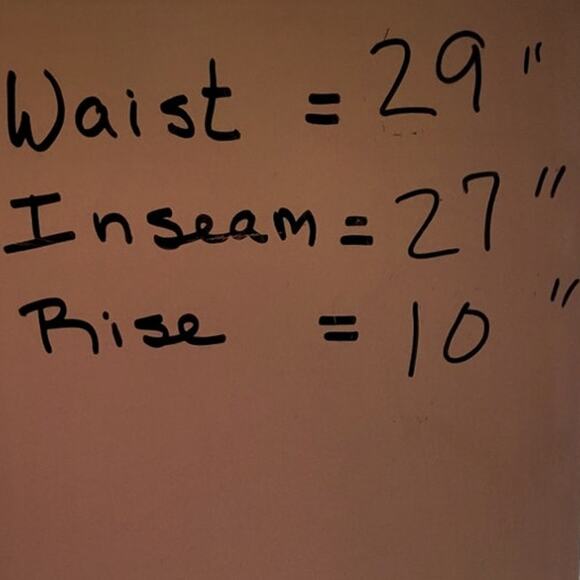 Waist = 29"
Inseam = 27"
Rise = 10"